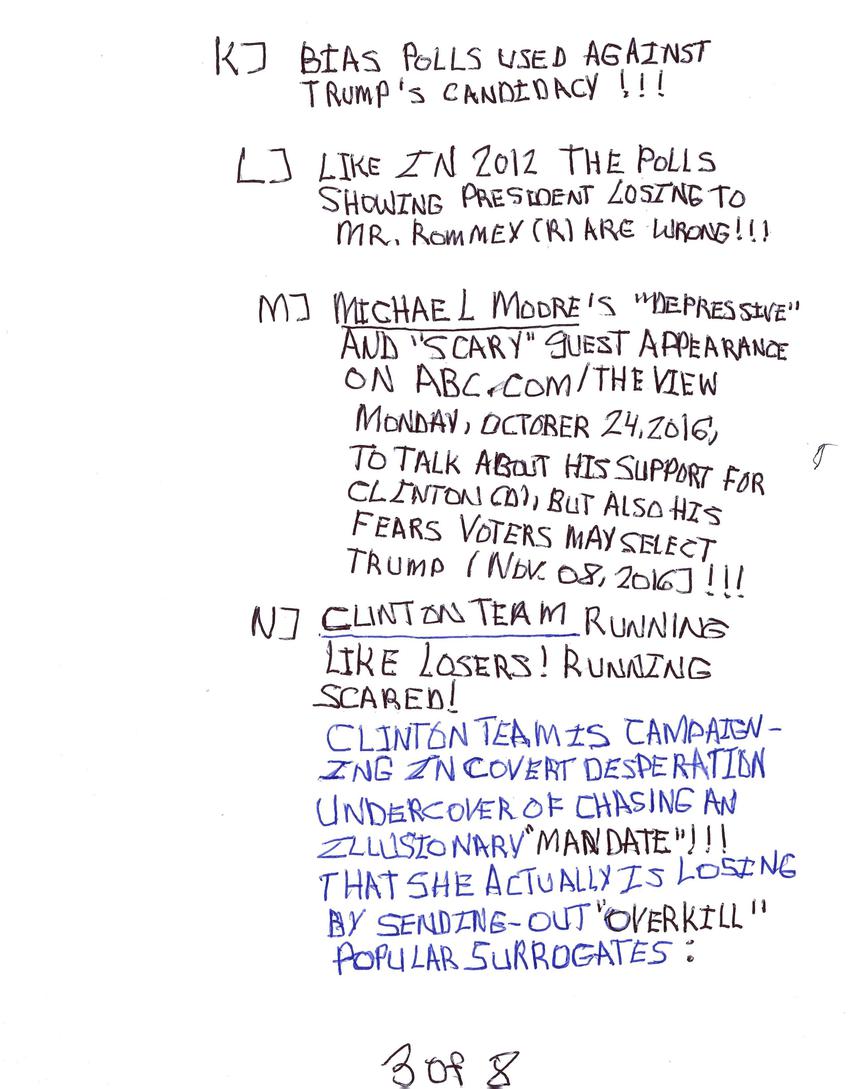 K] BIAS POLLS USED AGAINST
TRUMP'S CANDIDACY !!!
L] LIKE IN 2012 THE POLLS
SHOWING PRESIDENT LOSING TO
MR. ROMMEX (R) ARE WRONG!!!
M] MICHAEL MOORE'S "DEPRESSIVE"
AND "SCARY" GUEST APPEARANCE
ON ABC.COM/THE VIEW
MONDAY, OCTOBER 24, 2016,
TO TALK ABOUT HIS SUPPORT FOR
CLINTON (D), BUT ALSO HIS
FEARS VOTERS MAY SELECT
TRUMP (NOV. 08, 2016] !!!
N] CLINTON TEAM RUNNING
LIKE LOSERS! RUNNING
SCARED!
CLINTON TEAM IS CAMPAIGN-
ING IN COVERT DESPERATION
UNDERCOVER OF CHASING AN
ILLUSIONARY "MANDATE"!!!
THAT SHE ACTUALLY IS LOSING
BY SENDING-OUT "OVERKILL"
POPULAR SURROGATES :
3 of 8